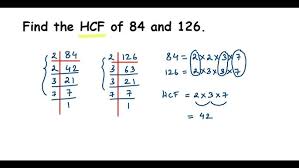 Find the HCF of 84 and 126.
2 | 84
2 | 42
3 | 21
7 | 7
1
2 | 126
3 | 63
3 | 21
7 | 7
1
84 = 2×2×3×7
126 = 2×3×3×7
HCF = 2×3×7
= 42